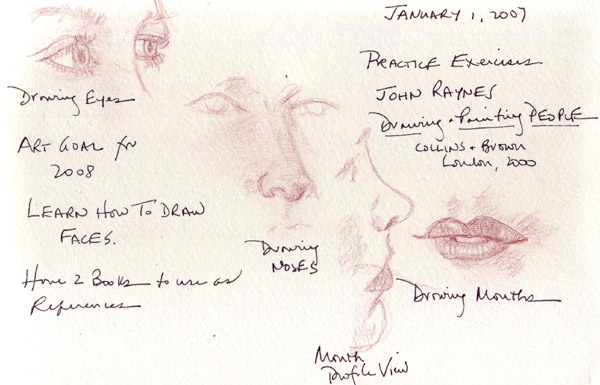 JANUARY 1, 2007
PRACTICE Exercises
JOHN RAYNES
Drawing + Painting PEOPLE
COLLINS + Brown
London, 2000
Drawing Eyes
ART GOAL for
2008
LEARN HOW TO DRAW
FACES.
Have 2 Books to use as
References
Drawing
NOSES
Drawing Mouths
Mouth
Profile View